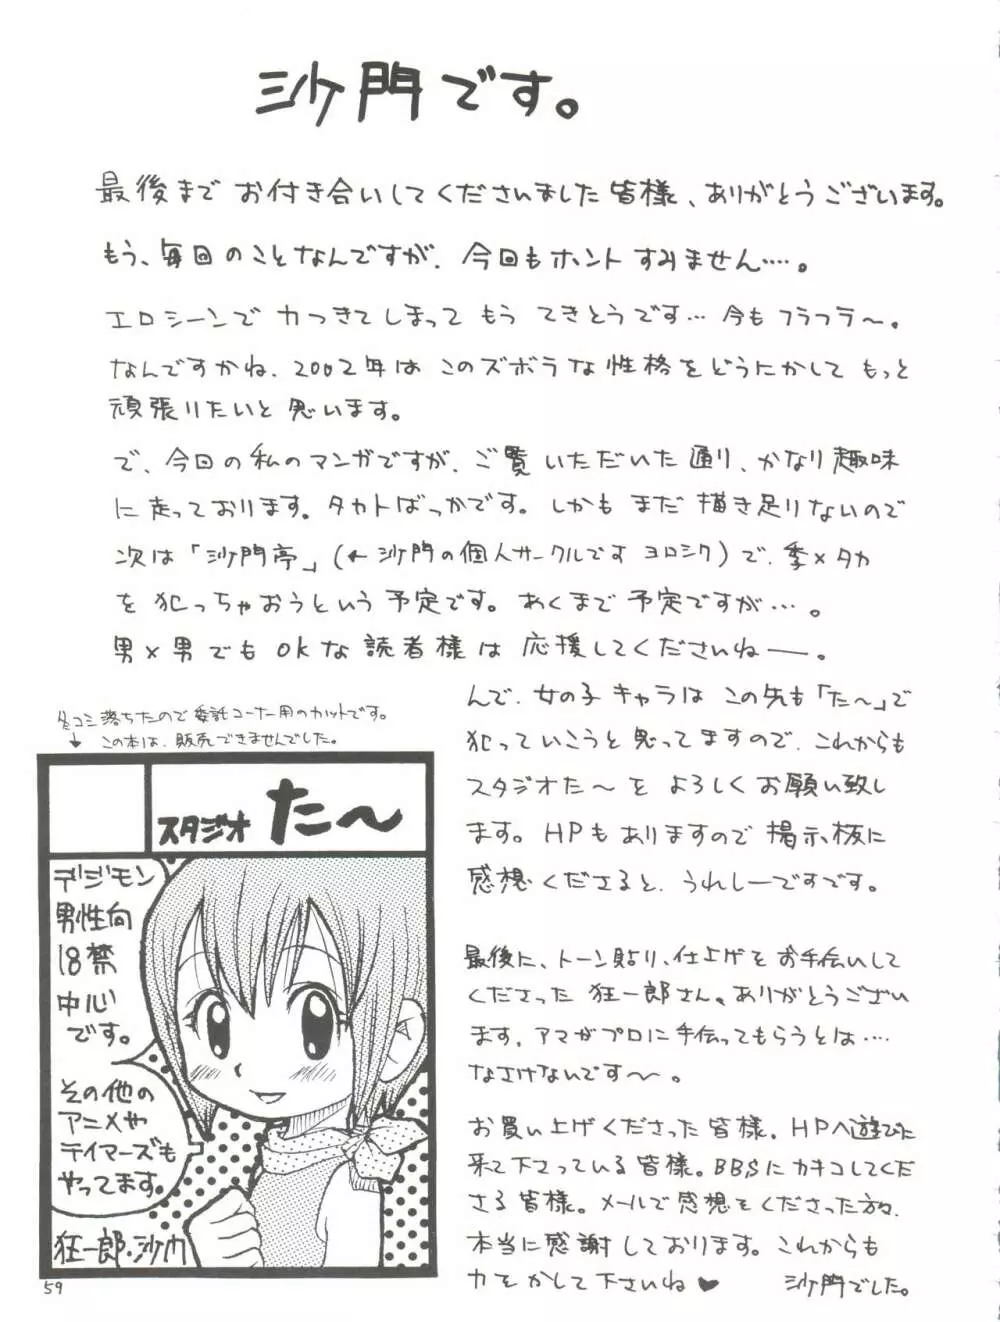 沙門です。
最後まで お付き合いしてくださいました皆様、ありがとうございます。
もう、毎回のことなんですが、今回もホント すみません…。
エロシーンで 力つきてしまって もう てきとうです… 今も フラフラ〜。
なんですかね、2002年は このズボラな性格をどうにかして もっと
頑張りたいと 思います。
で、今回の私のマンガですが、ご覧 いただいた通り、かなり趣味
に走っております。タカトばっかです。しかも まだ 描き足りないので
次は「沙門亭」(←沙門の個人サークルです ヨロシク)で、季×タカ
を 犯っちゃおうという 予定です。あくまで 予定ですが…。
男×男でも OKな 読者様は 応援してくださいねー。
んで、女の子キャラは この先も「た〜」で
犯っていこうと思ってますので、これからも
スタジオた〜を よろしくお願い致し
ます。HPもありますので 掲示板に
感想くださると、うれしーですです。
最後に、トーン貼り、仕上げを お手伝いして
くださった 狂一郎さん。ありがとうござい
ます。アマがプロに手伝ってもらうとは…
なさけないです〜。
お買い上げくださった 皆様。HPへ遊びに
来て下さっている 皆様。BBSに カキコしてくだ
さる 皆様。メールで感想を くださった方々、
本当に 感謝しております。これからも
力を かして下さいね♥ 沙門でした。
冬コミ落ちたので 委託コーナー用のカットです。
↓この本は、販売できませんでした。
スタジオ た〜
デジモン
男性向
18禁
中心
です。
その他の
アニメや
テイマーズも
やってます。
狂一郎・沙門
59